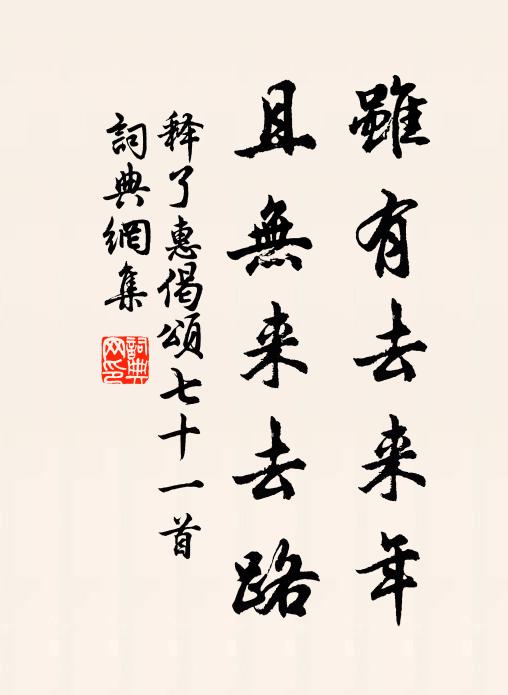 雖有去来年
且無来去路
释了惠偈頌七十一首
詞典網集
詞典网印